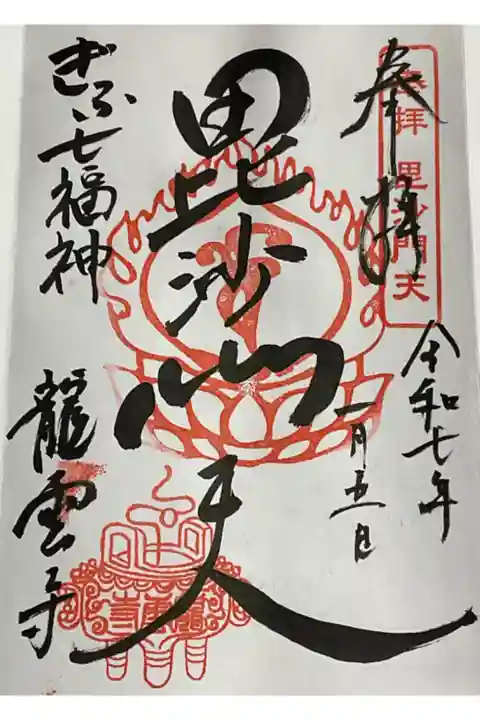 奉拝
奉拝 毘沙門天
令和七年
一月五日
毘沙門天
ぎふ七福神
龍雲寺